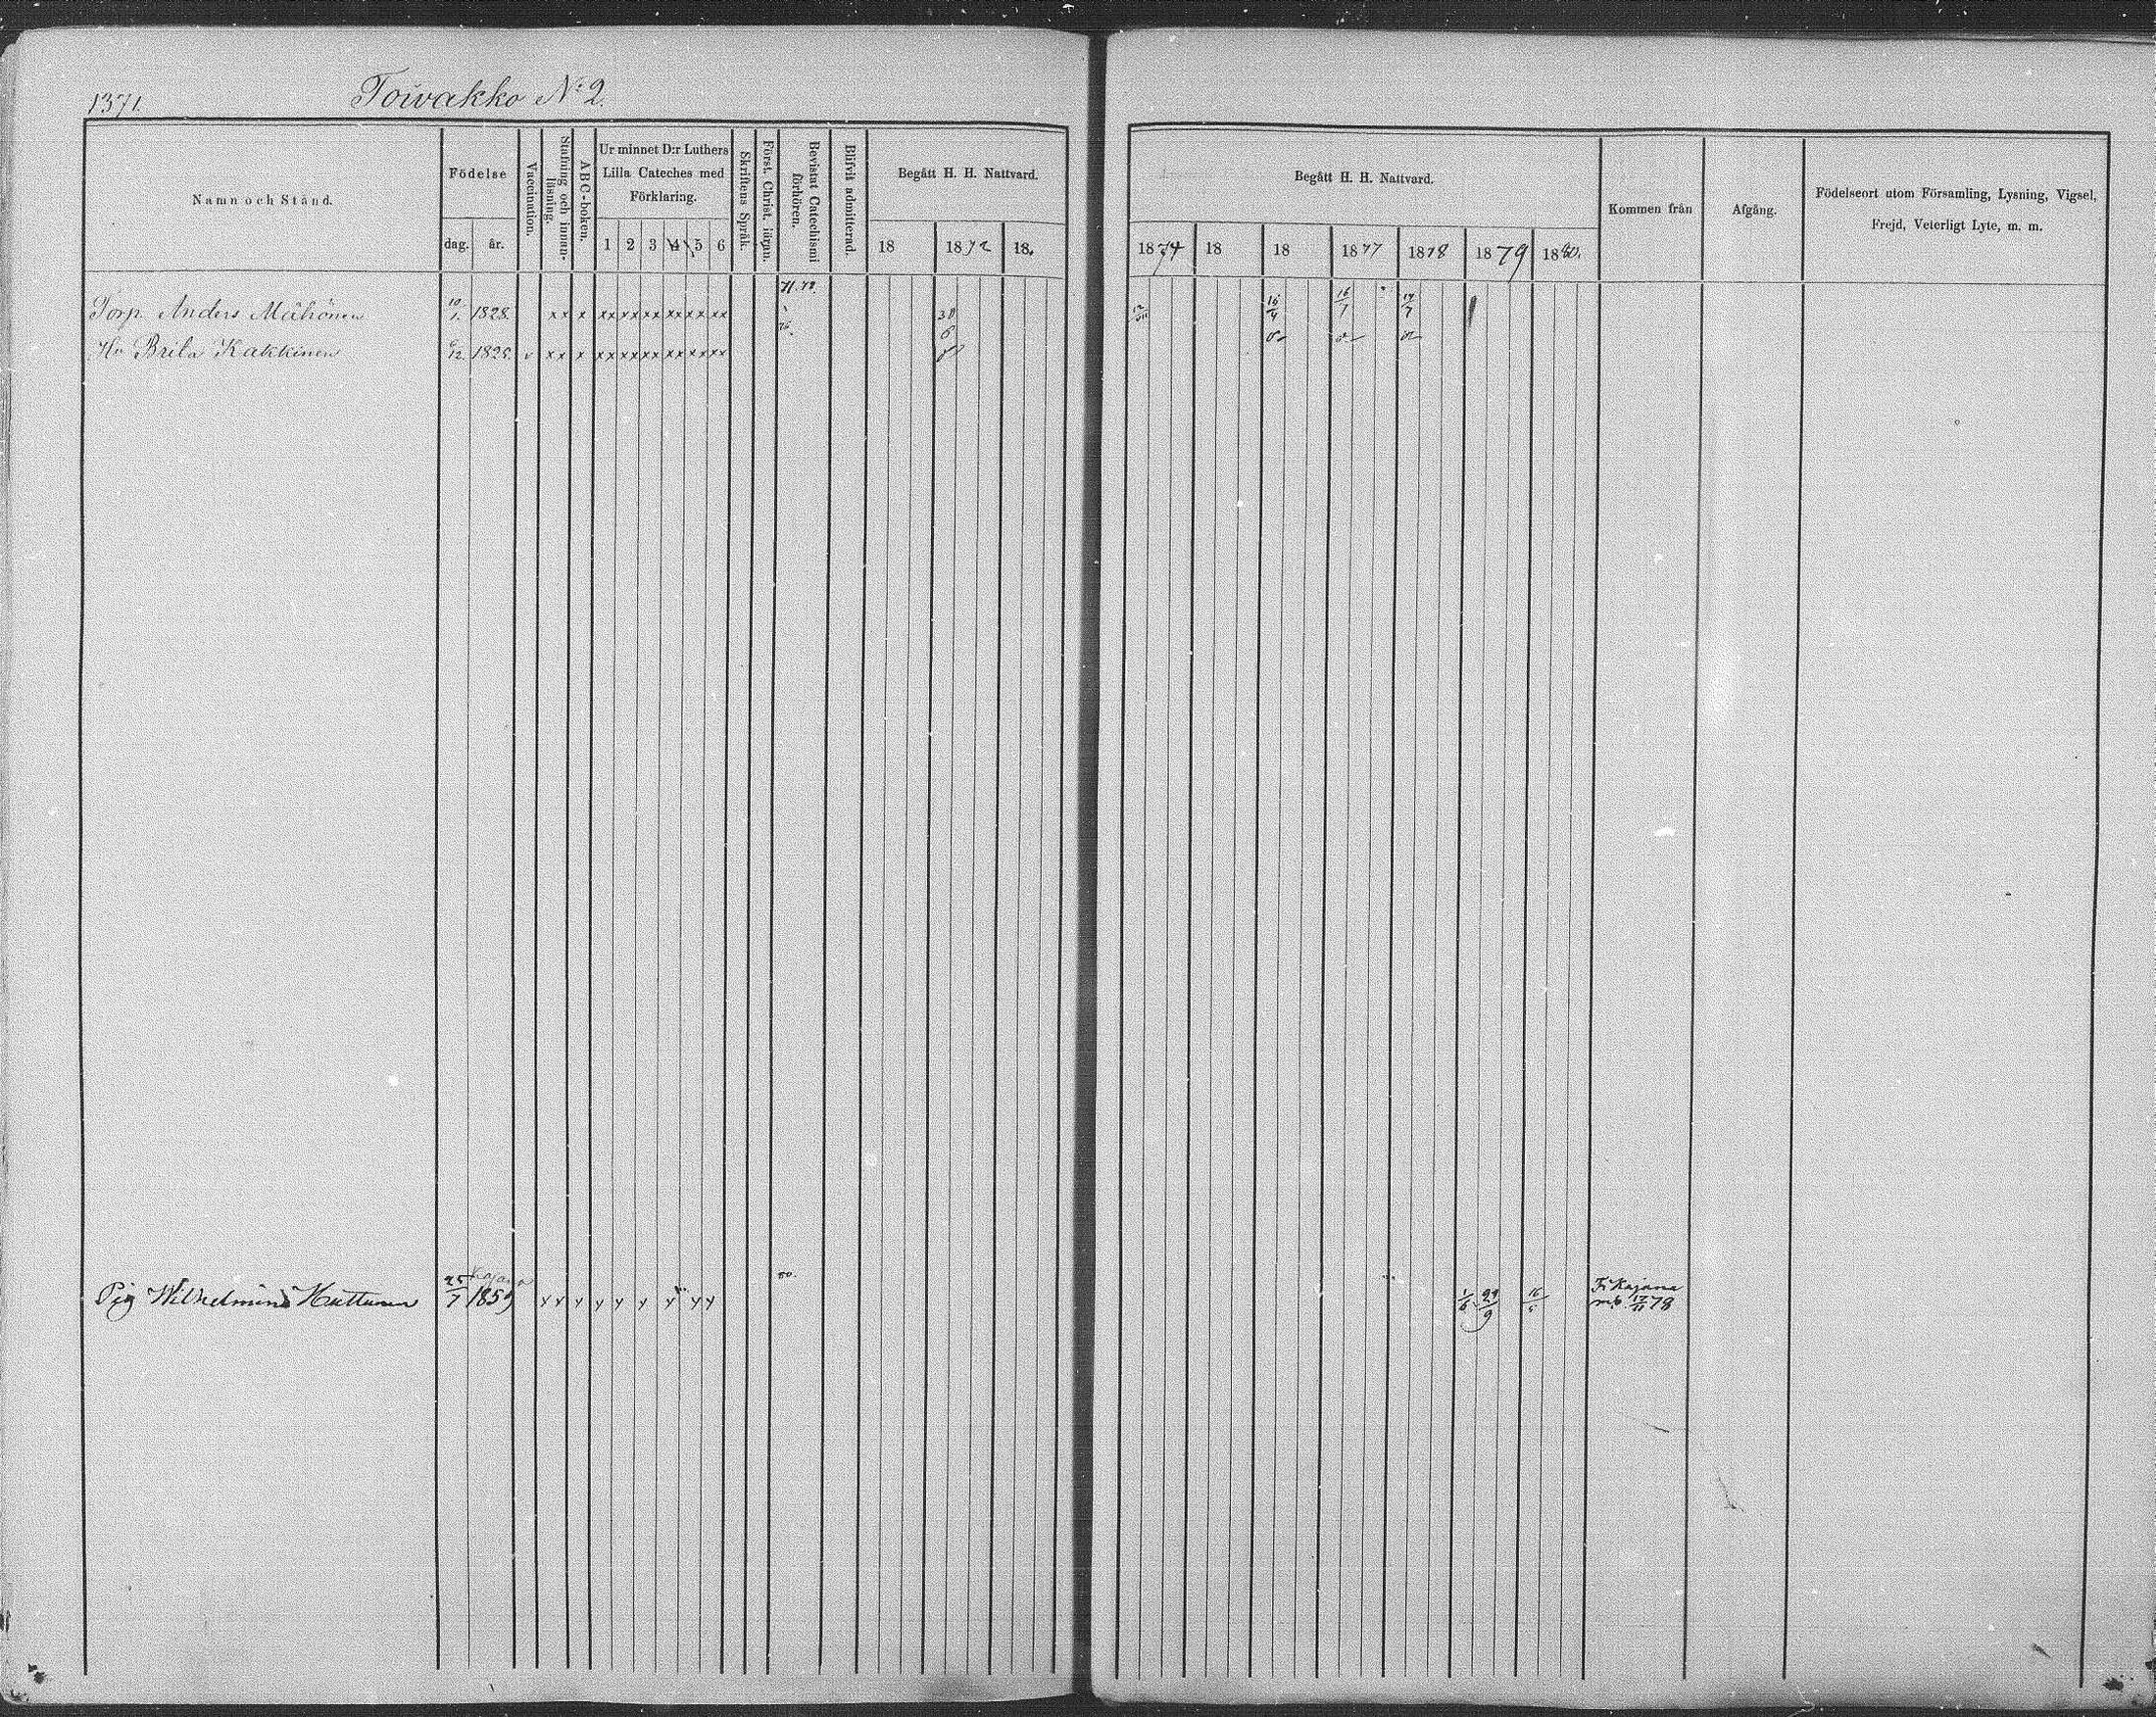 1371.
Toivakko No 2.
Namn och Stånd.
Födelse
dag. år.
Vaccination.
Stafning och innanläsning.
ABC-boken.
Ur minnet D:r Luthers
Lilla Cateches med
Förklaring.
1 2 3 4 5 6
Skriftens Språk.
Först. Christ. läran.
Bevistat Catechismi
förhören.
Blifvit admitterad.
Begått H. H. Nattvard.
18 1872 18
Begått H. H. Nattvard.
1874 18 18 1877 1878 1879 1880.
Kommen från
Afgång.
Födelseort utom Församling, Lysning, Vigsel,
Frejd, Veterligt Lyte, m. m.
Torp. Anders Mähönen 10/1. 1828. x x x xx xx xx xx xx xx 16/7
Hu Brita Kakkinen 1828. v x x x xx xx xx xx xx xx
Kajana
Pig Wilhelmina Huttunen 25/7 1859 80. 1/6 29/9 16/5
Fr. Kajana
78